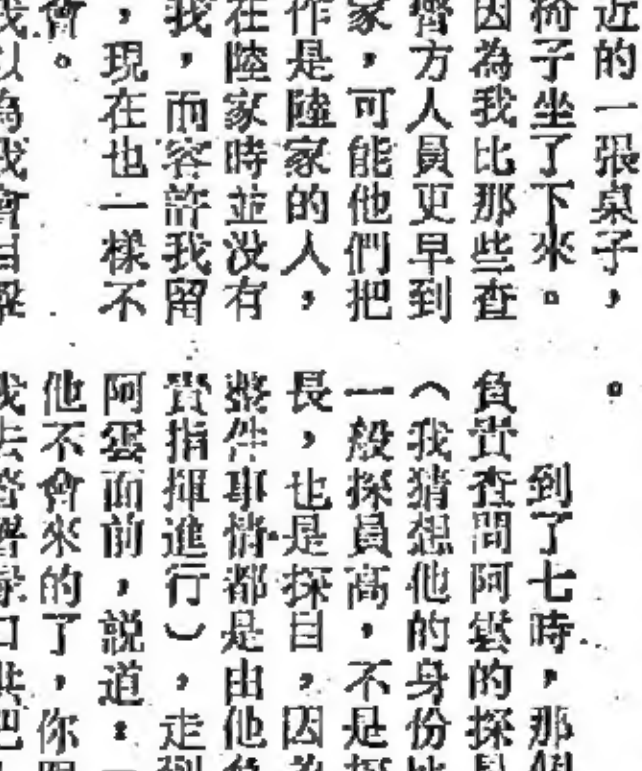 近的一張桌子，
椅子坐了下來。
因為我比那些查
方人員更早到
家，可能他們把
作是陸家的人，
在陸家時並没有
我，而容許我留
，現在也一樣不
會。
我以為我會目擊
。
到了七時，那個
負責查問阿雲的探員
（我猜想他的身份比
一般探員高，不是探
長，也是探目，因為
整件事情都是由他負
責指揮進行），走到
阿雲面前，説道：
他不會來的了，你跟
我去警署錄口供吧